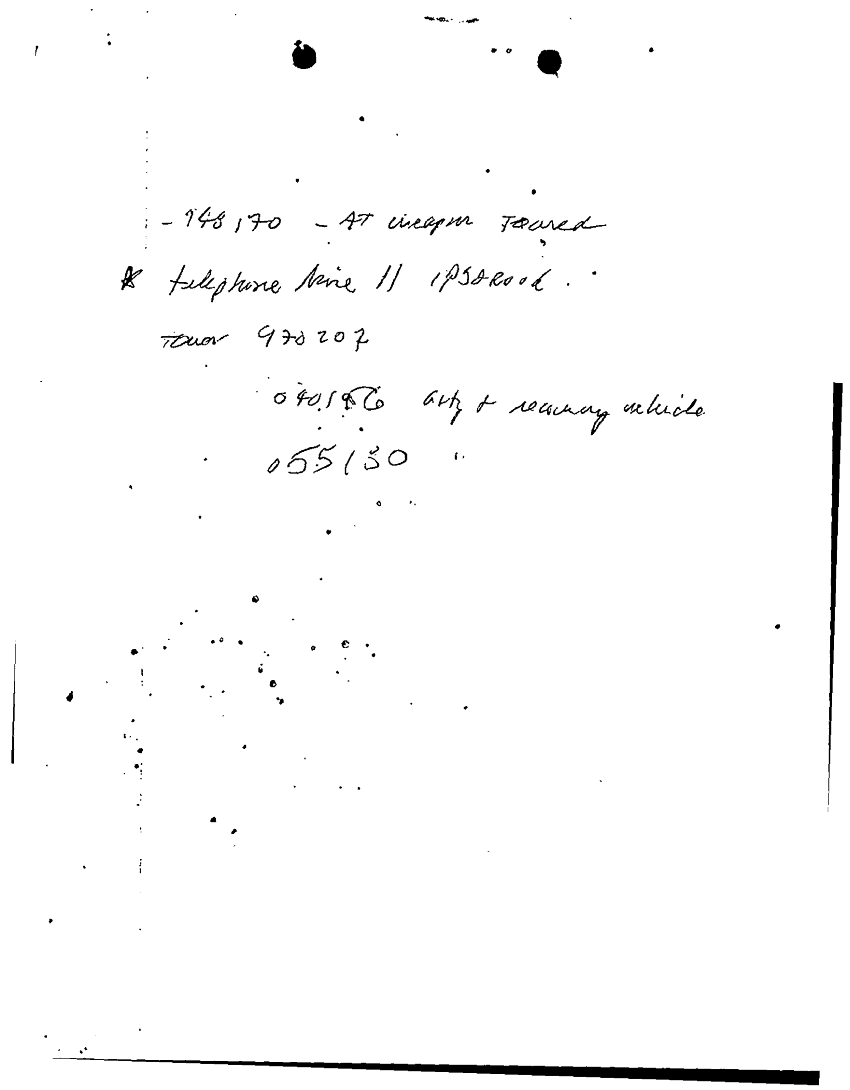 - 948170 - AT weapon Towed
* telephone line // IPSA Road.
Tower 970207
040196 arty & recovery vehicle
055130 "